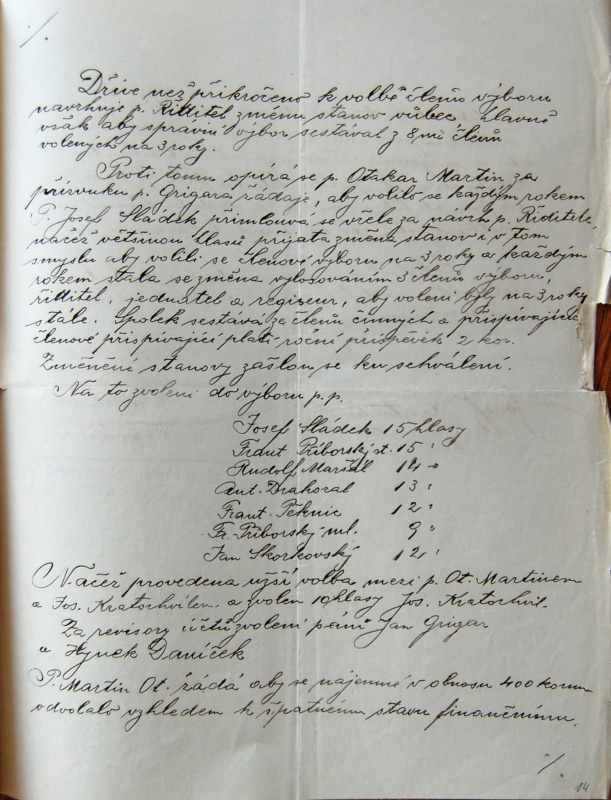 ./.
Dříve než přikročeno k volbě členů výboru
navrhuje p. Řiditel změnu stanov vůbec, hlavně
však aby správní výbor sestával z 8mi členů
volených na 3 roky.
Proti tomu opírá se p. Otakar Martin za
přízvuku p. Grigara žádaje, aby volilo se každým rokem
P. Josef Sládek přimlouvá se vřele za návrh p. Řiditele,
načež většinou hlasů přijata změna stanov i v tom
smyslu aby volili se členové výboru na 3 roky a každým
rokem stala se změna vylosováním 3 členů výboru,
řiditel, jednatel a regiseur, aby voleni byly na 3 roky
stále. Spolek sestává za členů činných a přispívajících
členové přispívající platí roční příspěvek 2 kor.
Změněné stanovy zašlou se ku schválení.
Na to zvoleni do výboru p.p.
Josef Sládek 15 hlasy
Frant Příborský st. 15 "
Rudolf Maršál 14 "
Ant. Drahoral 13 "
Frant. Pěknic 12 "
Fr. Příborský ml. 9 "
Jan Skorkovský 12 "
Načež provedena užší volba mezi p. Ot. Martinem
a Jos. Kratochvílem a zvolen 10 hlasy Jos. Kratochvíl.
Za revisory účtů zvoleni páni Jan Grigar
a Hynek Daníček
P. Martin Ot. žádá aby se nájemné v obnosu 400 korun
odvolalo vzhledem k špatnému stavu finančnímu.
./.
14